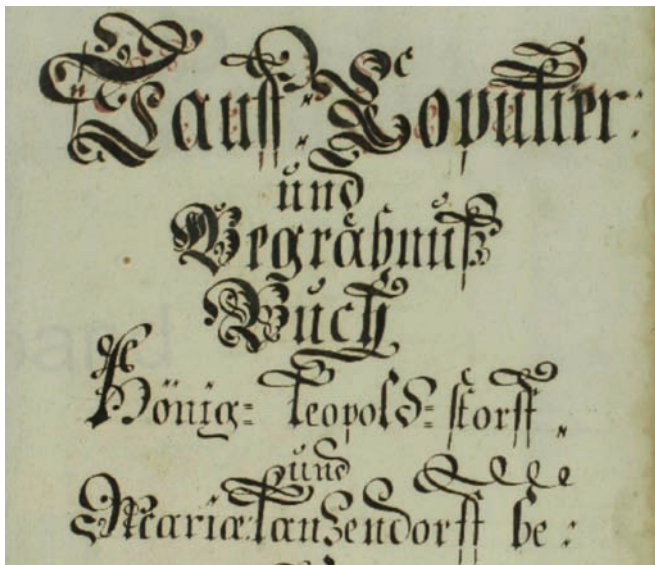 Tauff= Copulier:
und
Begräbnuß
Buch
König= Leopold= storff,
und
Mariælanzendorff be: